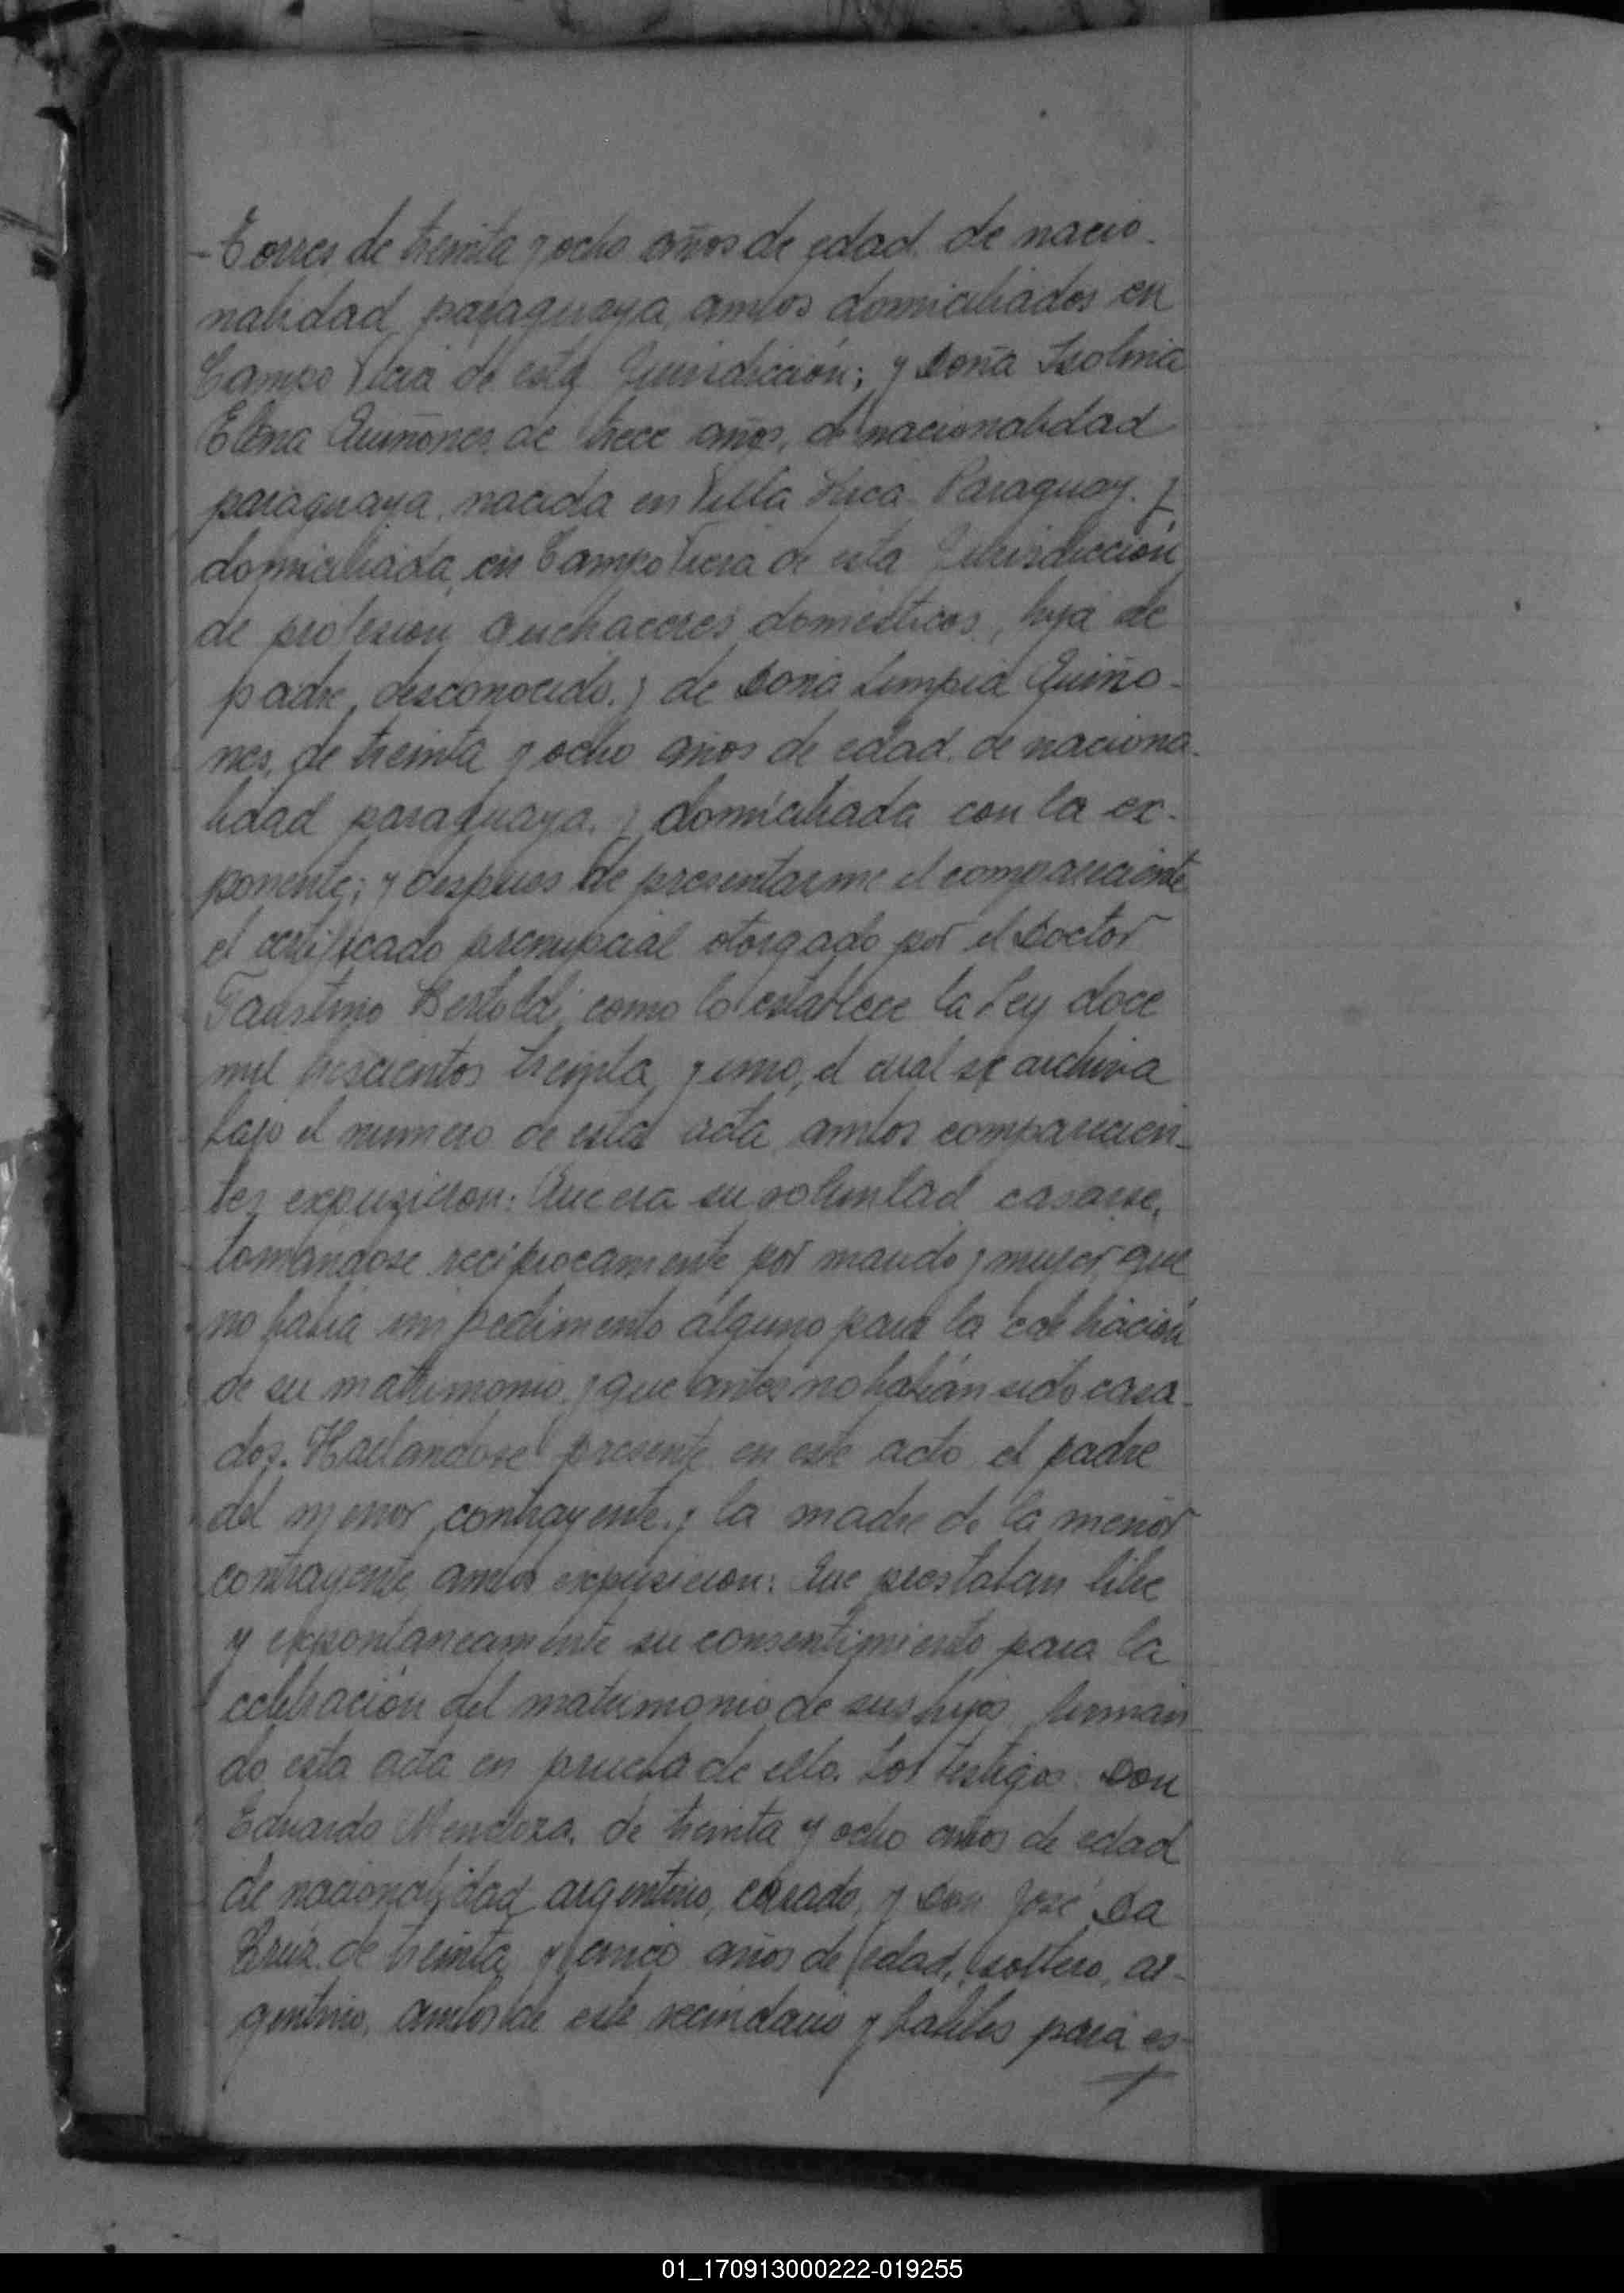 Torres de treinta y ocho años de edad de nacio-
nalidad paraguaya, ambos domiciliados en
Campo Viera de esta Jurisdicción; y Doña Isolina
Elena Quiñones, de trece años, de nacionalidad
paraguaya, nacida en Villa Rica Paraguay. y
domiciliada en Campo Viera de esta Jurisdicción
de profesion quehaceres domésticos, hija de
padre desconocido, y de Doña Limpia Quiño-
nes, de treinta y ocho años de edad, de naciona-
lidad paraguaya, y domiciliada con la ex-
ponente; y despues de presentarme el compareciente
el certificado prenupcial otorgado por el Doctor
Faustino Bertoldi, como lo establece la Ley doce
mil trescientos treinta y uno, el cual se archiva
bajo el numero de esta acta, ambos comparecien-
tes expusieron: Que era su voluntad casarse,
tomandose reciprocamente por marido y mujer, que
no habia impedimento alguno para la celebración
de su matrimonio, y que antes no habián sido casa-
dos. Hallandose presente en este acto el padre
del menor contrayente, y la madre de la menor
contrayente, ambos expusieron: Que prestaban libre
y expontaneamente su consentimiento para la
celebración del matrimonio de sus hijos, firman-
do esta acta en prueba de ello. Los testigos: Don
Eduardo Mendoza, de treinta y ocho años de edad
de nacionalidad argentino, casado, y Don José Da
Cruz, de treinta y cinco años de edad, soltero, ar-
gentino, ambos de este vecindario y habiles para es-
01_170913000222-019255